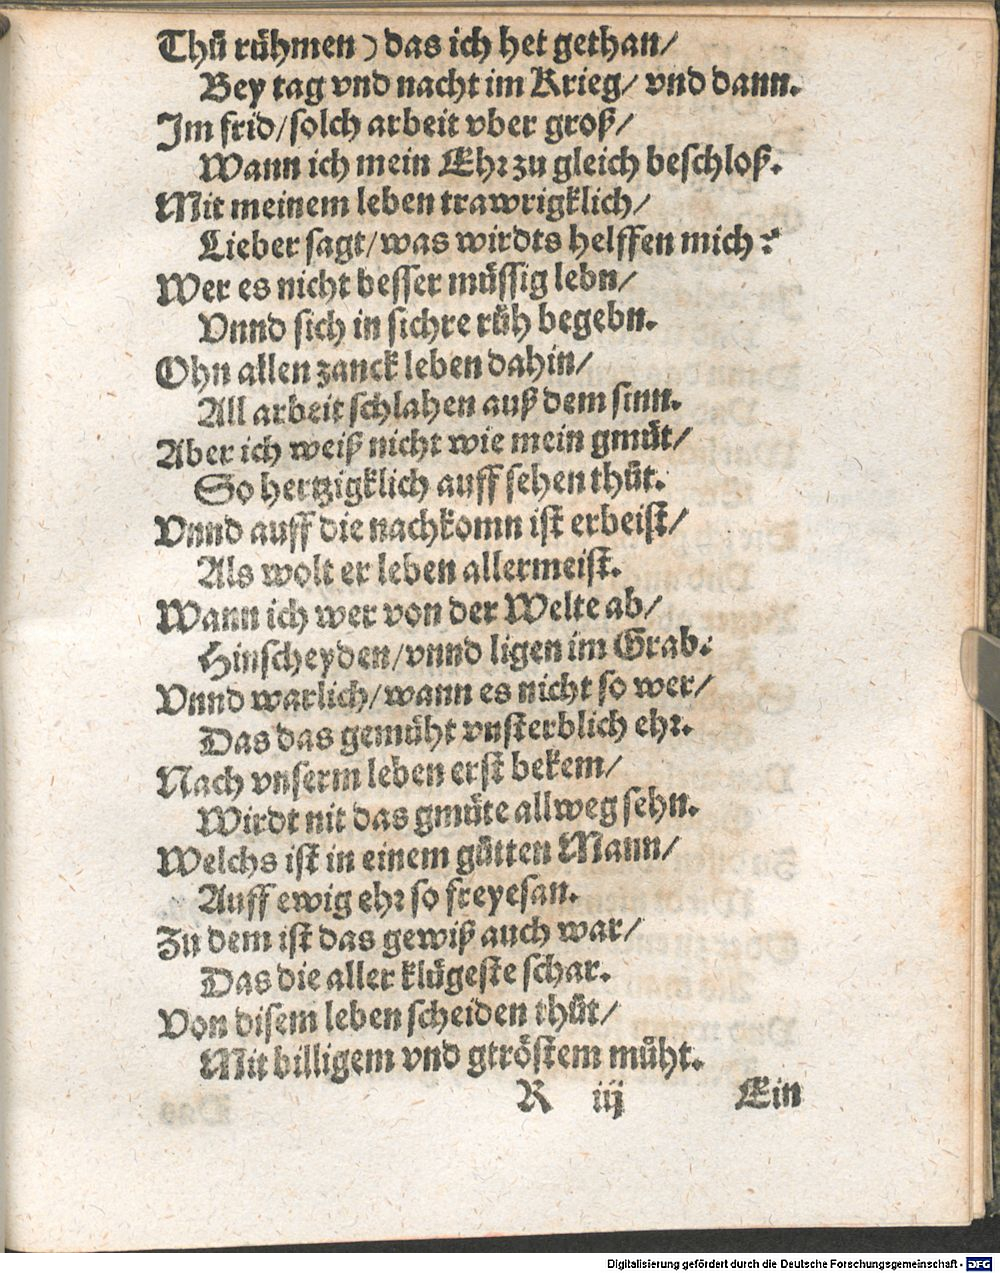 Thů rühmen) das ich het gethan/
Bey tag vnd nacht im Krieg/ vnd dann.
Im frid/ solch arbeit vber groß/
Wann ich mein Ehr zu gleich beschloß.
Mit meinem leben trawrigklich/
Lieber sagt/ was wirdts helffen mich?
Wer es nicht besser müssig lebn/
Vnnd sich in sichre růh begebn.
Ohn allen zanck leben dahin/
All arbeit schlahen auß dem sinn.
Aber ich weiß nicht wie mein gmüt/
So hertzigklich auff sehen thůt.
Vnnd auff die nachkomn ist erbeist/
Als wolt er leben allermeist.
Wann ich wer von der Welte ab/
Hinscheyden/ vnnd ligen im Grab:
Vnnd warlich/ wann es nicht so wer/
Das das gemüht vnsterblich ehr.
Nach vnserm leben erst bekem/
Wirdt nit das gmüte allweg sehn.
Welchs ist in einem gůtten Mann/
Auff ewig ehr so freyesan.
Zu dem ist das gewiß auch war/
Das die aller klügeste schar.
Von disem leben scheiden thůt/
Mit billigem vnd gtröstem můht.
R iij Ein
Digitalisierung gefördert durch die Deutsche Forschungsgemeinschaft - DFG